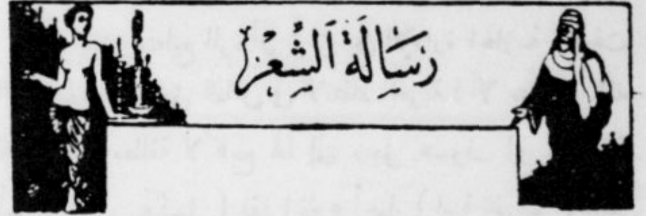 رِسَالَة اَلشِّعْرُ